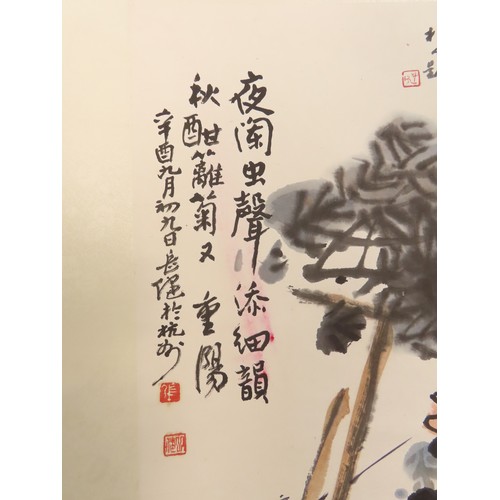 夜闌虫聲添細韻
秋酣籬菊又重陽
辛酉九月初九日長健於杭州